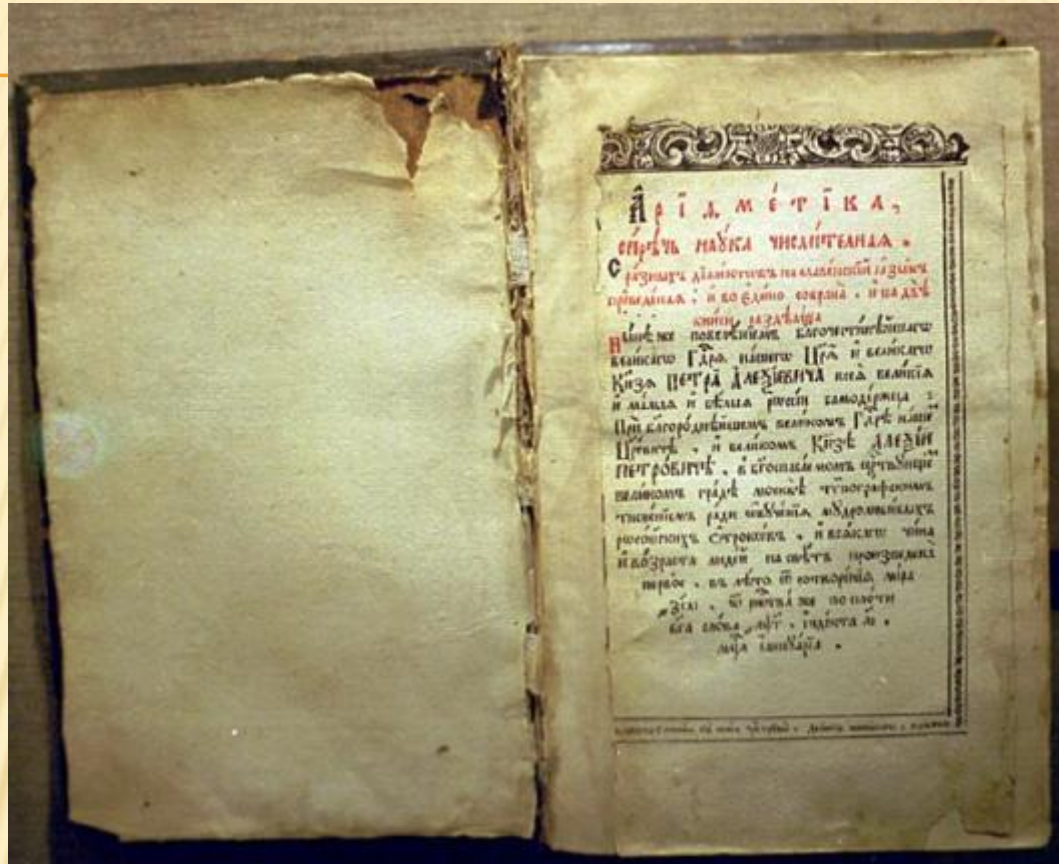 Арїѳме́тїка,
си́рѣчь наꙋ́ка числи́телная.
С ра́зныхъ дїале́ктовъ на славе́нскїй ꙗзы́къ
преведе́ная, и҆ во є҆ди́но собрана̀, и҆ на двѣ̀
кни̑ги раздѣлена̀
Ны́нѣ же повелѣ́нїемъ благочести́вѣйшагѡ
вели́кагѡ Гдⷭ҇рѧ на́шегѡ Цр҃ѧ̀ и҆ вели́кагѡ
Кн҃зѧ ПЕТРА̀ А҆ЛЕѮІ́ЕВИЧА всеѧ̀ вели́кїѧ
и҆ ма́лыѧ и҆ бѣ́лыѧ рѡссі́и самоде́ржца :
Прѝ благоро́днѣйшемъ вели́комъ Гдⷭ҇рѣ на́шемъ
Цр҃е́вичѣ, и҆ вели́комъ Кн҃зѣ А҆ЛЕѮІ́И
ПЕТРО́ВИЧѢ, в бг҃оспаса́емомъ црⷭ҇твꙋющемъ
вели́комъ гра́дѣ москвѣ̀ тѵпогра́фскимъ
тисне́нїемъ ра́ди ѡ҆бꙋче́нїѧ мꙋдролюби́выхъ
рѡссі́йскихъ ѻ҆́трокѡвъ, и҆ всѧ́кагѡ чи́на
и҆ во́зраста люде́й на свѣ́тъ произведена̀
пе́рвое, въ лѣ́то ѿ сотворе́нїѧ мі́ра
҂зсаі, ѿ рождⷭ҇тва́ же по пло́ти
бг҃а сло́ва ҂аѱг, і҆ндїкта аі.
мцⷭ҇а і҆аннꙋа́рїа.